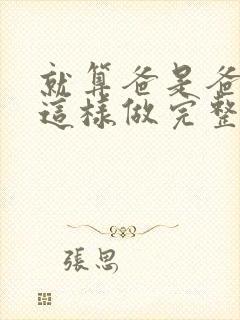 就算爸是爸
這樣做完整
張思